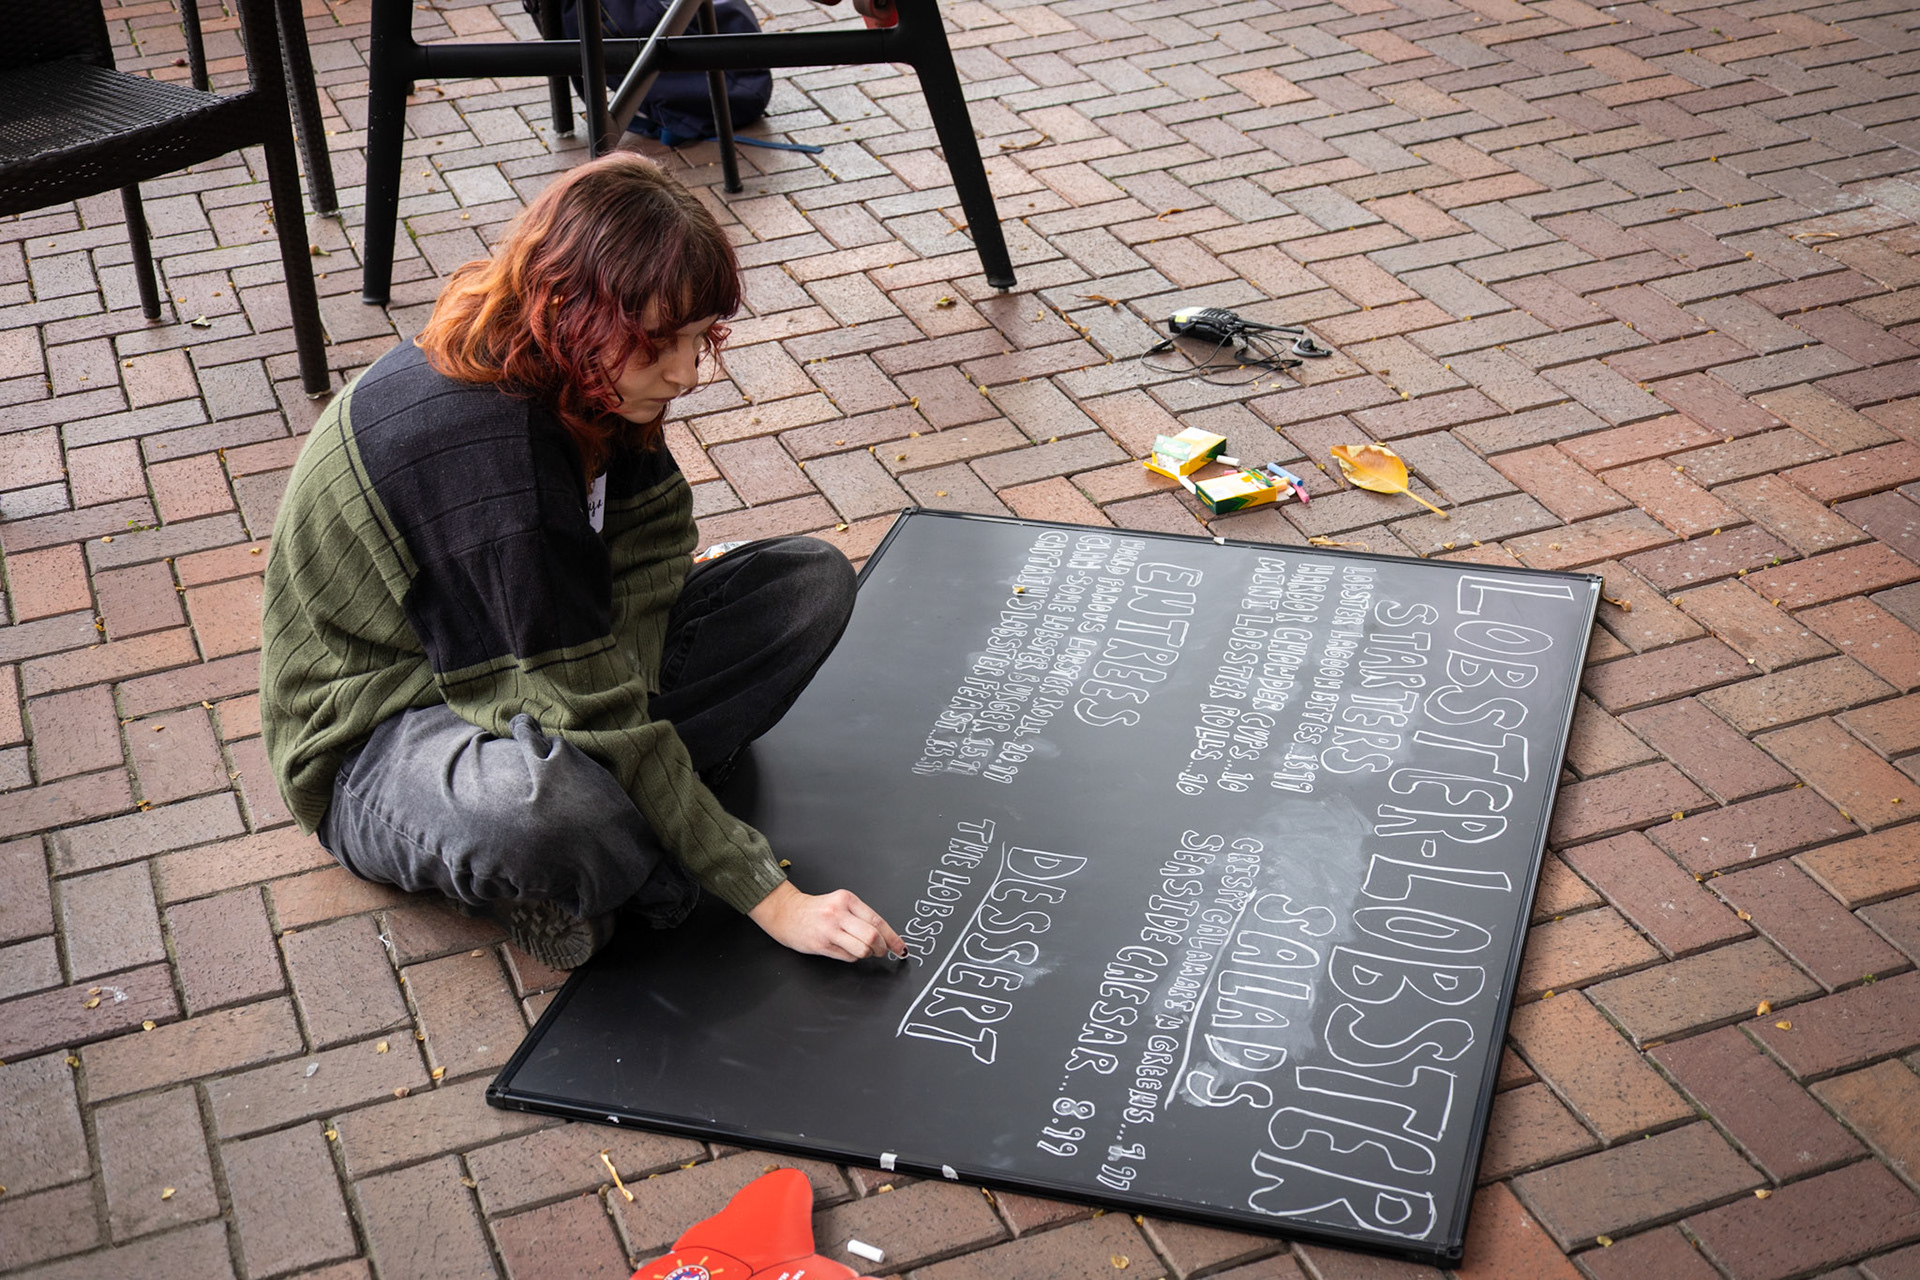 LOBSTER-LOBSTER
STARTERS
LOBSTER LAGOON BITES...13.99
HARBOR CHOWDER CUPS...10
MINI LOBSTER ROLLS...10
SALADS
CRISPY CALAMARI N GREENS...9.99
SEASIDE CAESAR...8.99
ENTREES
WORLD FAMOUS LOBSTER ROLL..20.99
CLAM-SOME LOBSTER BURGER 15.99
CAPTAIN'S LOBSTER FEAST...
DESSERT
THE LOBST